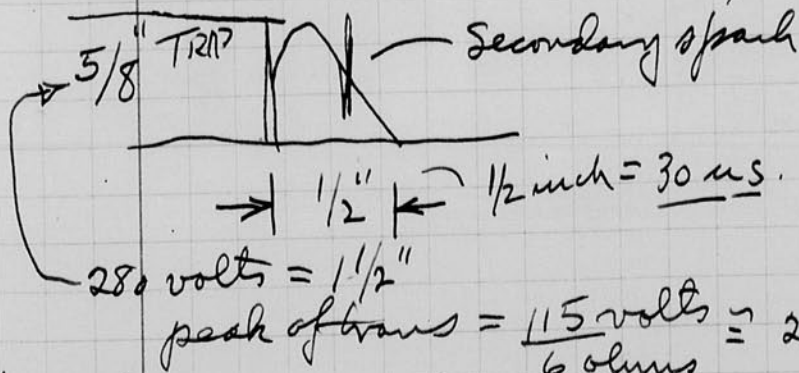 5/8" TRIP
Secondary spark
1/2"
1/2 inch = 30 us.
280 volts = 1 1/2"
peak of trans = 115 volts = 2
6 ohms